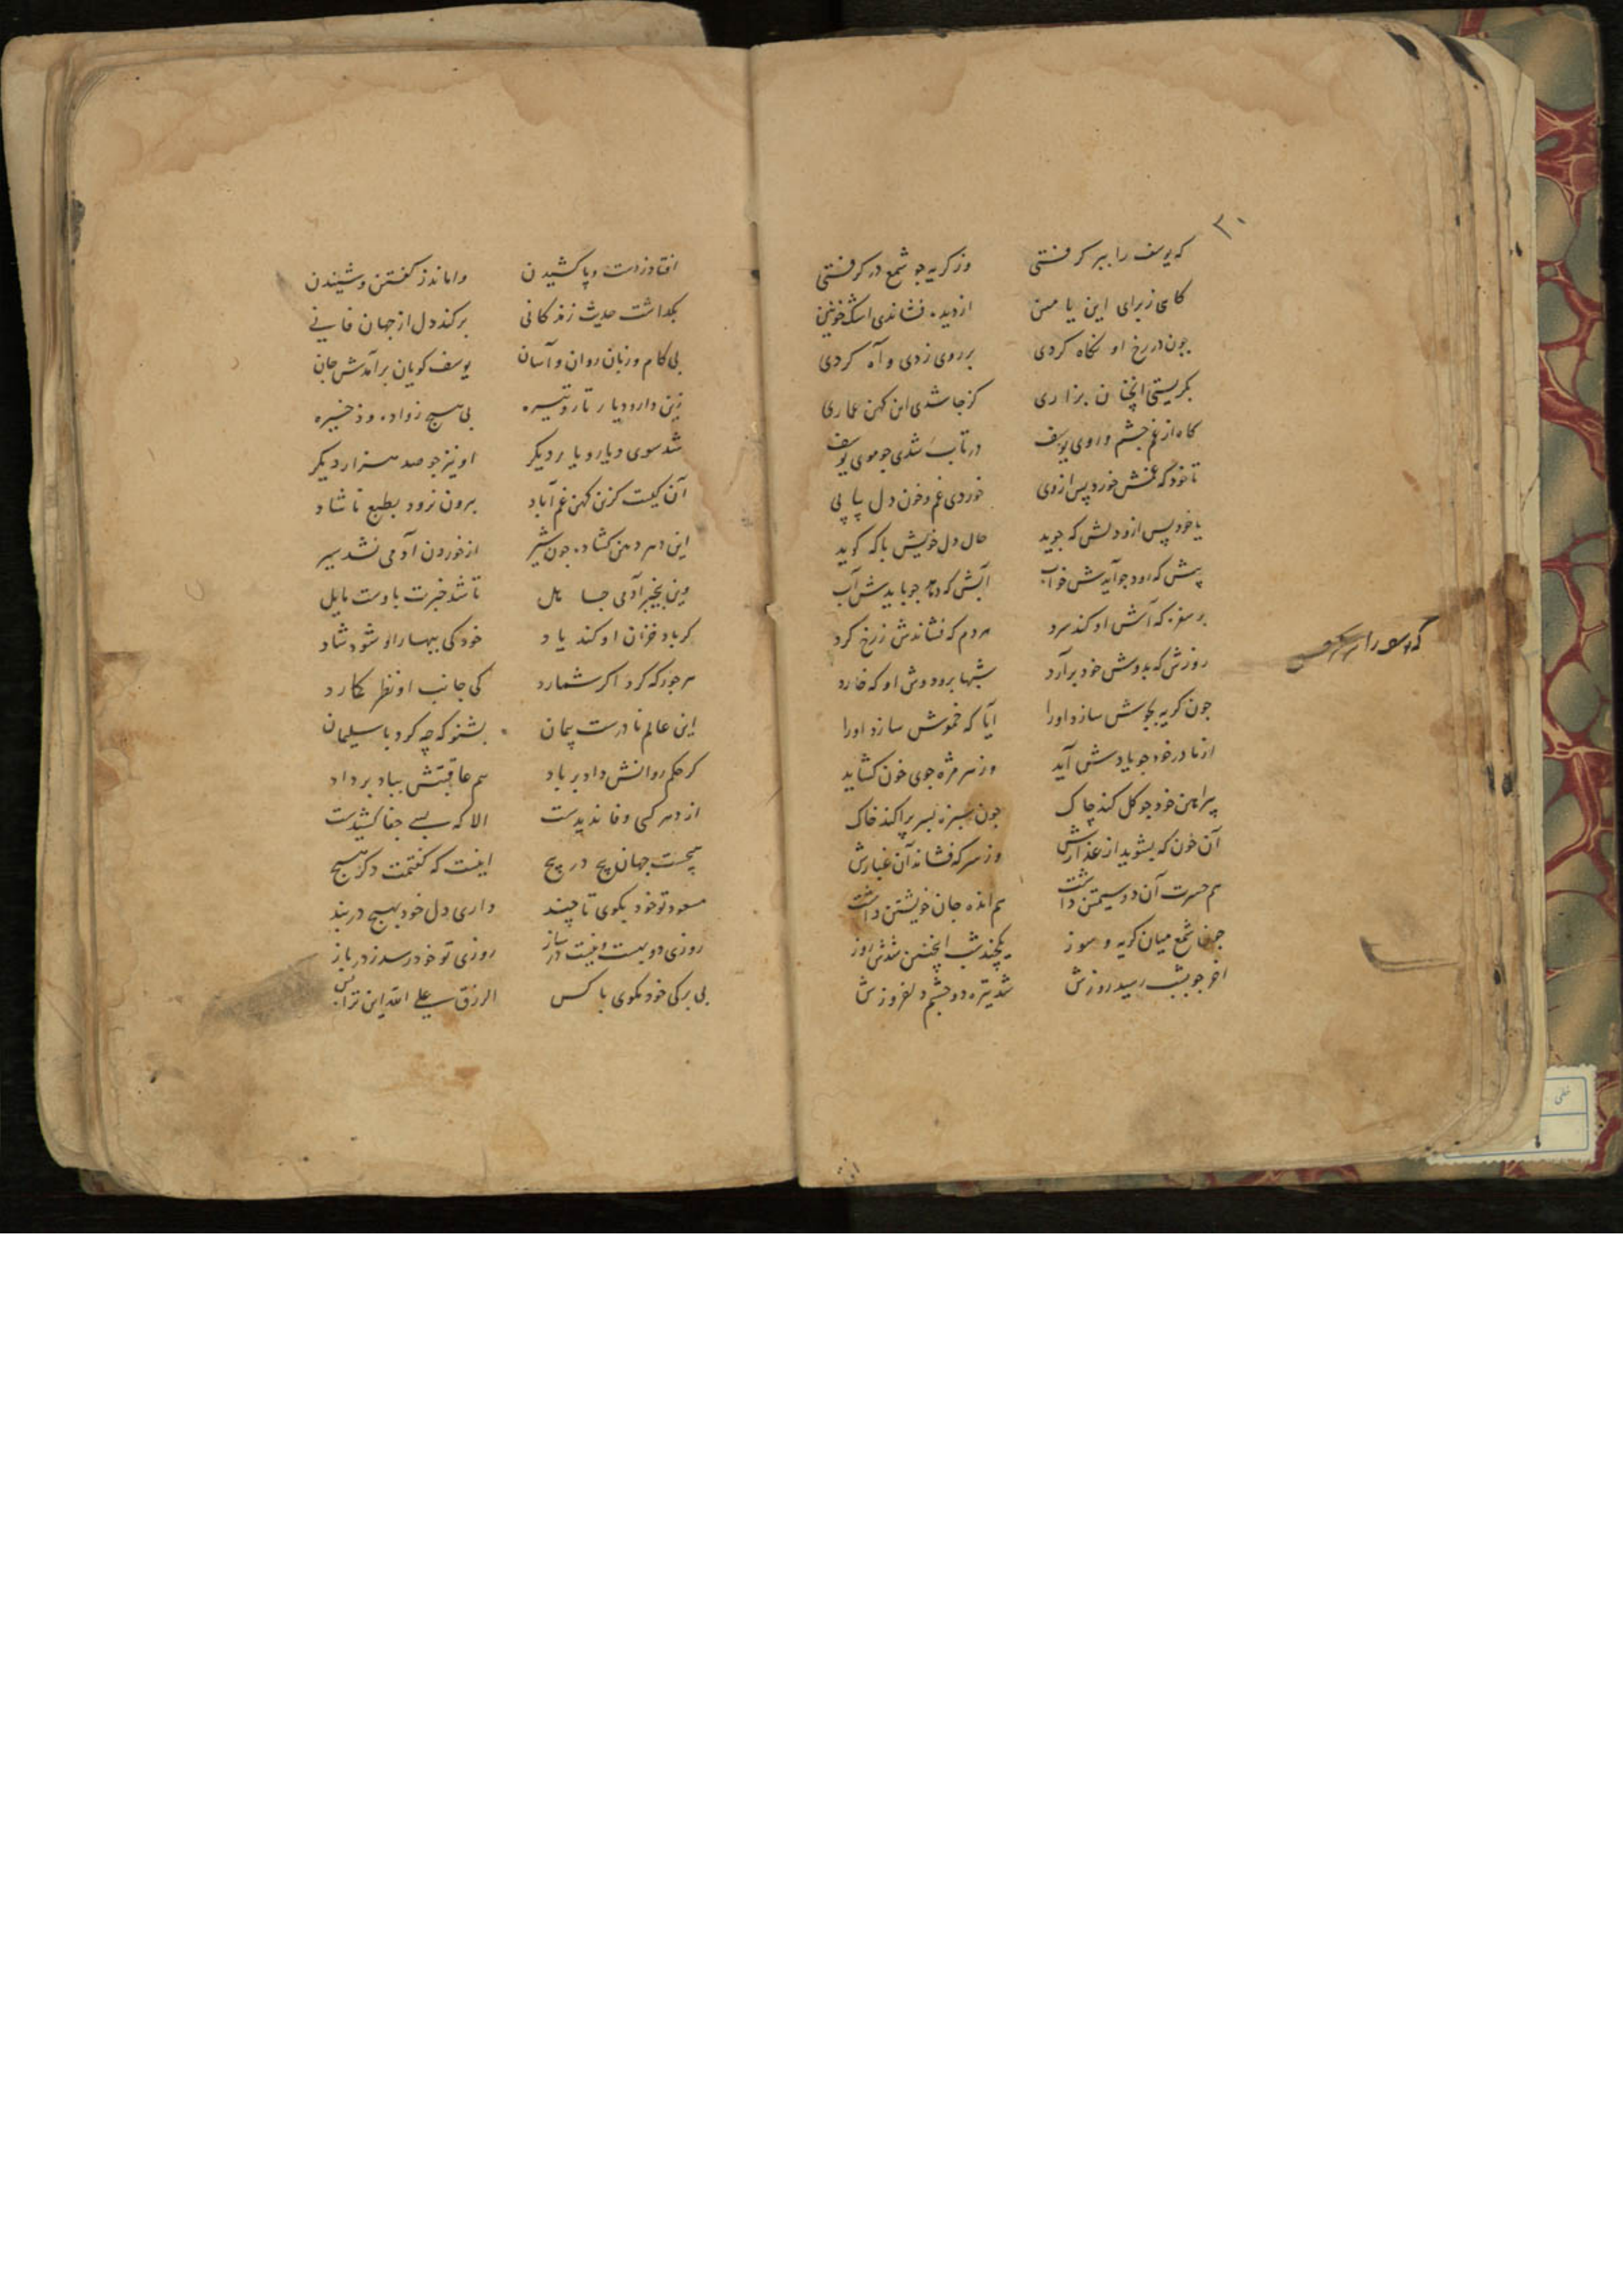 ۳۰
که یوسف را ببر کرفتی وز کریه جو شمع در کرفتی
کاهی ز برای ابن یامین از دیده فشاندی اشک خونین
چون در رخ او نکاه کردی بر روی زدی و آه کردی
بکریستی آنچنان بزاری کز جا شدی این کهن عماری
کاه از غم چشم و روی یوسف در تاب شدی جو موی یوسف
تا خود که غمش خورد پس از وی خوردی غم و خون دل پیاپی
یا خود پس ازو دلش که جوید حال دل خویش با که کوید
پیش که رود جو آیدش خواب آبش که دهد جو بایدش آب
بر سفره که آتش او کند سرد مردم که فشاندش ز رخ کرد
روزش که بدوش خود برآرد شبها بر و دوش او که خارد
چون کریه بجوش سازد او را آیا که خموش سازد او را
از مادر خود جو یادش آید وز هر مژه جوی خون کشاید
پیراهن خود جو کل کند چاک چون سبزه بسر پراکند خاک
آن خون که بشوید از عذارش وز سر که فشاند آن غبارش
هم حسرت آن دو سیمتن داشت هم انده جان خویشتن داشت
چون شمع میان کریه و سوز یکچند شب اینچنین شدش روز
آخر جو بشب رسید روزش شد تیره دو چشم دلفروزش
که یوسف را
افتاد ز دست و پا کشیدن واماند ز کفتن و شنیدن
بکداشت حدیث زندکانی برکند دل از جهان فانی
بی کام و زبان روان و آسان یوسف کویان برآمدش جان
زین دار و دیار تار و تیره بی هیچ ز زاد و ذخیره
شد سوی دیار و یار دیکر او نیز جو صد هزار دیکر
آن کیست کزین کهن غم آباد بیرون نرود بطبع ناشاد
این دهر دهن کشاده چون شیر از خوردن آدمی نشد سیر
وین بیخبر آدمی جاهل تا شد خبرت بدوست مایل
کر باد خزان او کند یاد خود کی ببهار او شود شاد
هر جور که کرد اکر شمارد کی جانب او نظر کمارد
این عالم نادرست پیمان بشنو که چه کرد با سلیمان
کر حکم روانش داد بر باد هم عاقبتش بباد بر داد
از دهر کسی وفا ندیدست الا که بسی جفا کشیدست
هیچست جهان پیچ در پیچ اینست که کفتمت دکر هیچ
مسعود تو خود بکوی تا چند داری دل خود بهیچ در بند
روزی دو بیست و نیست در ساز روزی تو خود رسد ز در باز
بی برکی خود مکوی با کس الرزق علی الله این ترا بس